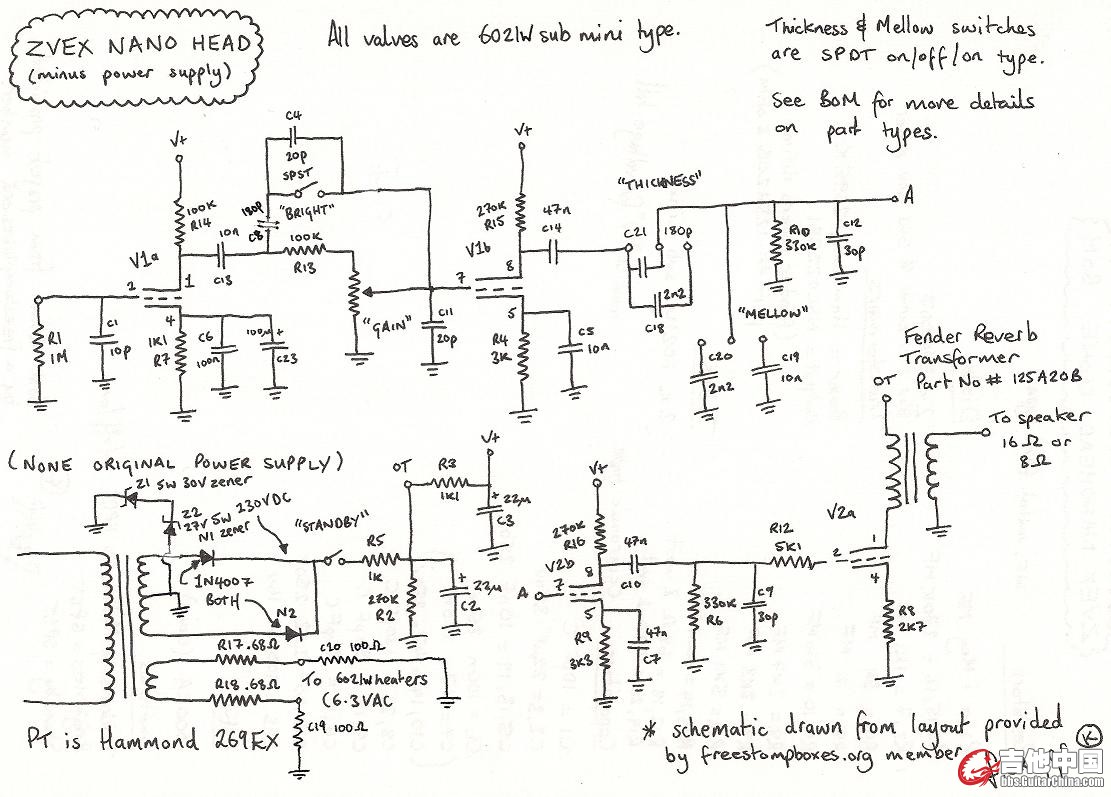 ZVEX NANO HEAD
(minus power supply)
All valves are 6021W sub mini type.
Thickness & Mellow switches
are SPDT on/off/on type.
See BOM for more details
on part types.
V+
100K
R14
V1a
2
1
4
10n
C13
C4
20p
SPST
"BRIGHT"
180p
C8
100K
R13
"GAIN"
R1
1M
C1
10p
1K1
R7
C6
100n
100µ
+
C23
C11
20p
V+
270K
R15
V1b
7
8
5
R4
3K
C5
10n
47n
C14
"THICKNESS"
C21
180p
2n2
C18
"MELLOW"
C20
2n2
C19
10n
R10
330K
C12
30p
A
Fender Reverb
Transformer
Part No# 125A20B
OT
To speaker
16Ω or
8Ω
(NONE ORIGINAL POWER SUPPLY)
Z1 5W 30V zener
Z2
27V 5W
zener
N1
230VDC
1N4007
BOTH
N2
"STANDBY"
R5
1K
OT
R3
1K1
V+
+
22µ
C3
270K
R2
+
22µ
C2
R17 .68Ω
R18 .68Ω
C20 100Ω
To 6021W heaters
(6.3VAC
C19 100Ω
PT is Hammond 269EX
V+
270K
R16
V2b
A
7
8
5
R9
3K3
47n
C7
47n
C10
330K
R6
C9
30p
R12
5K1
V2a
2
1
4
R8
2K7
* schematic drawn from layout provided
by freestompboxes.org member
K
吉他中国
bbs.GuitarChina.com